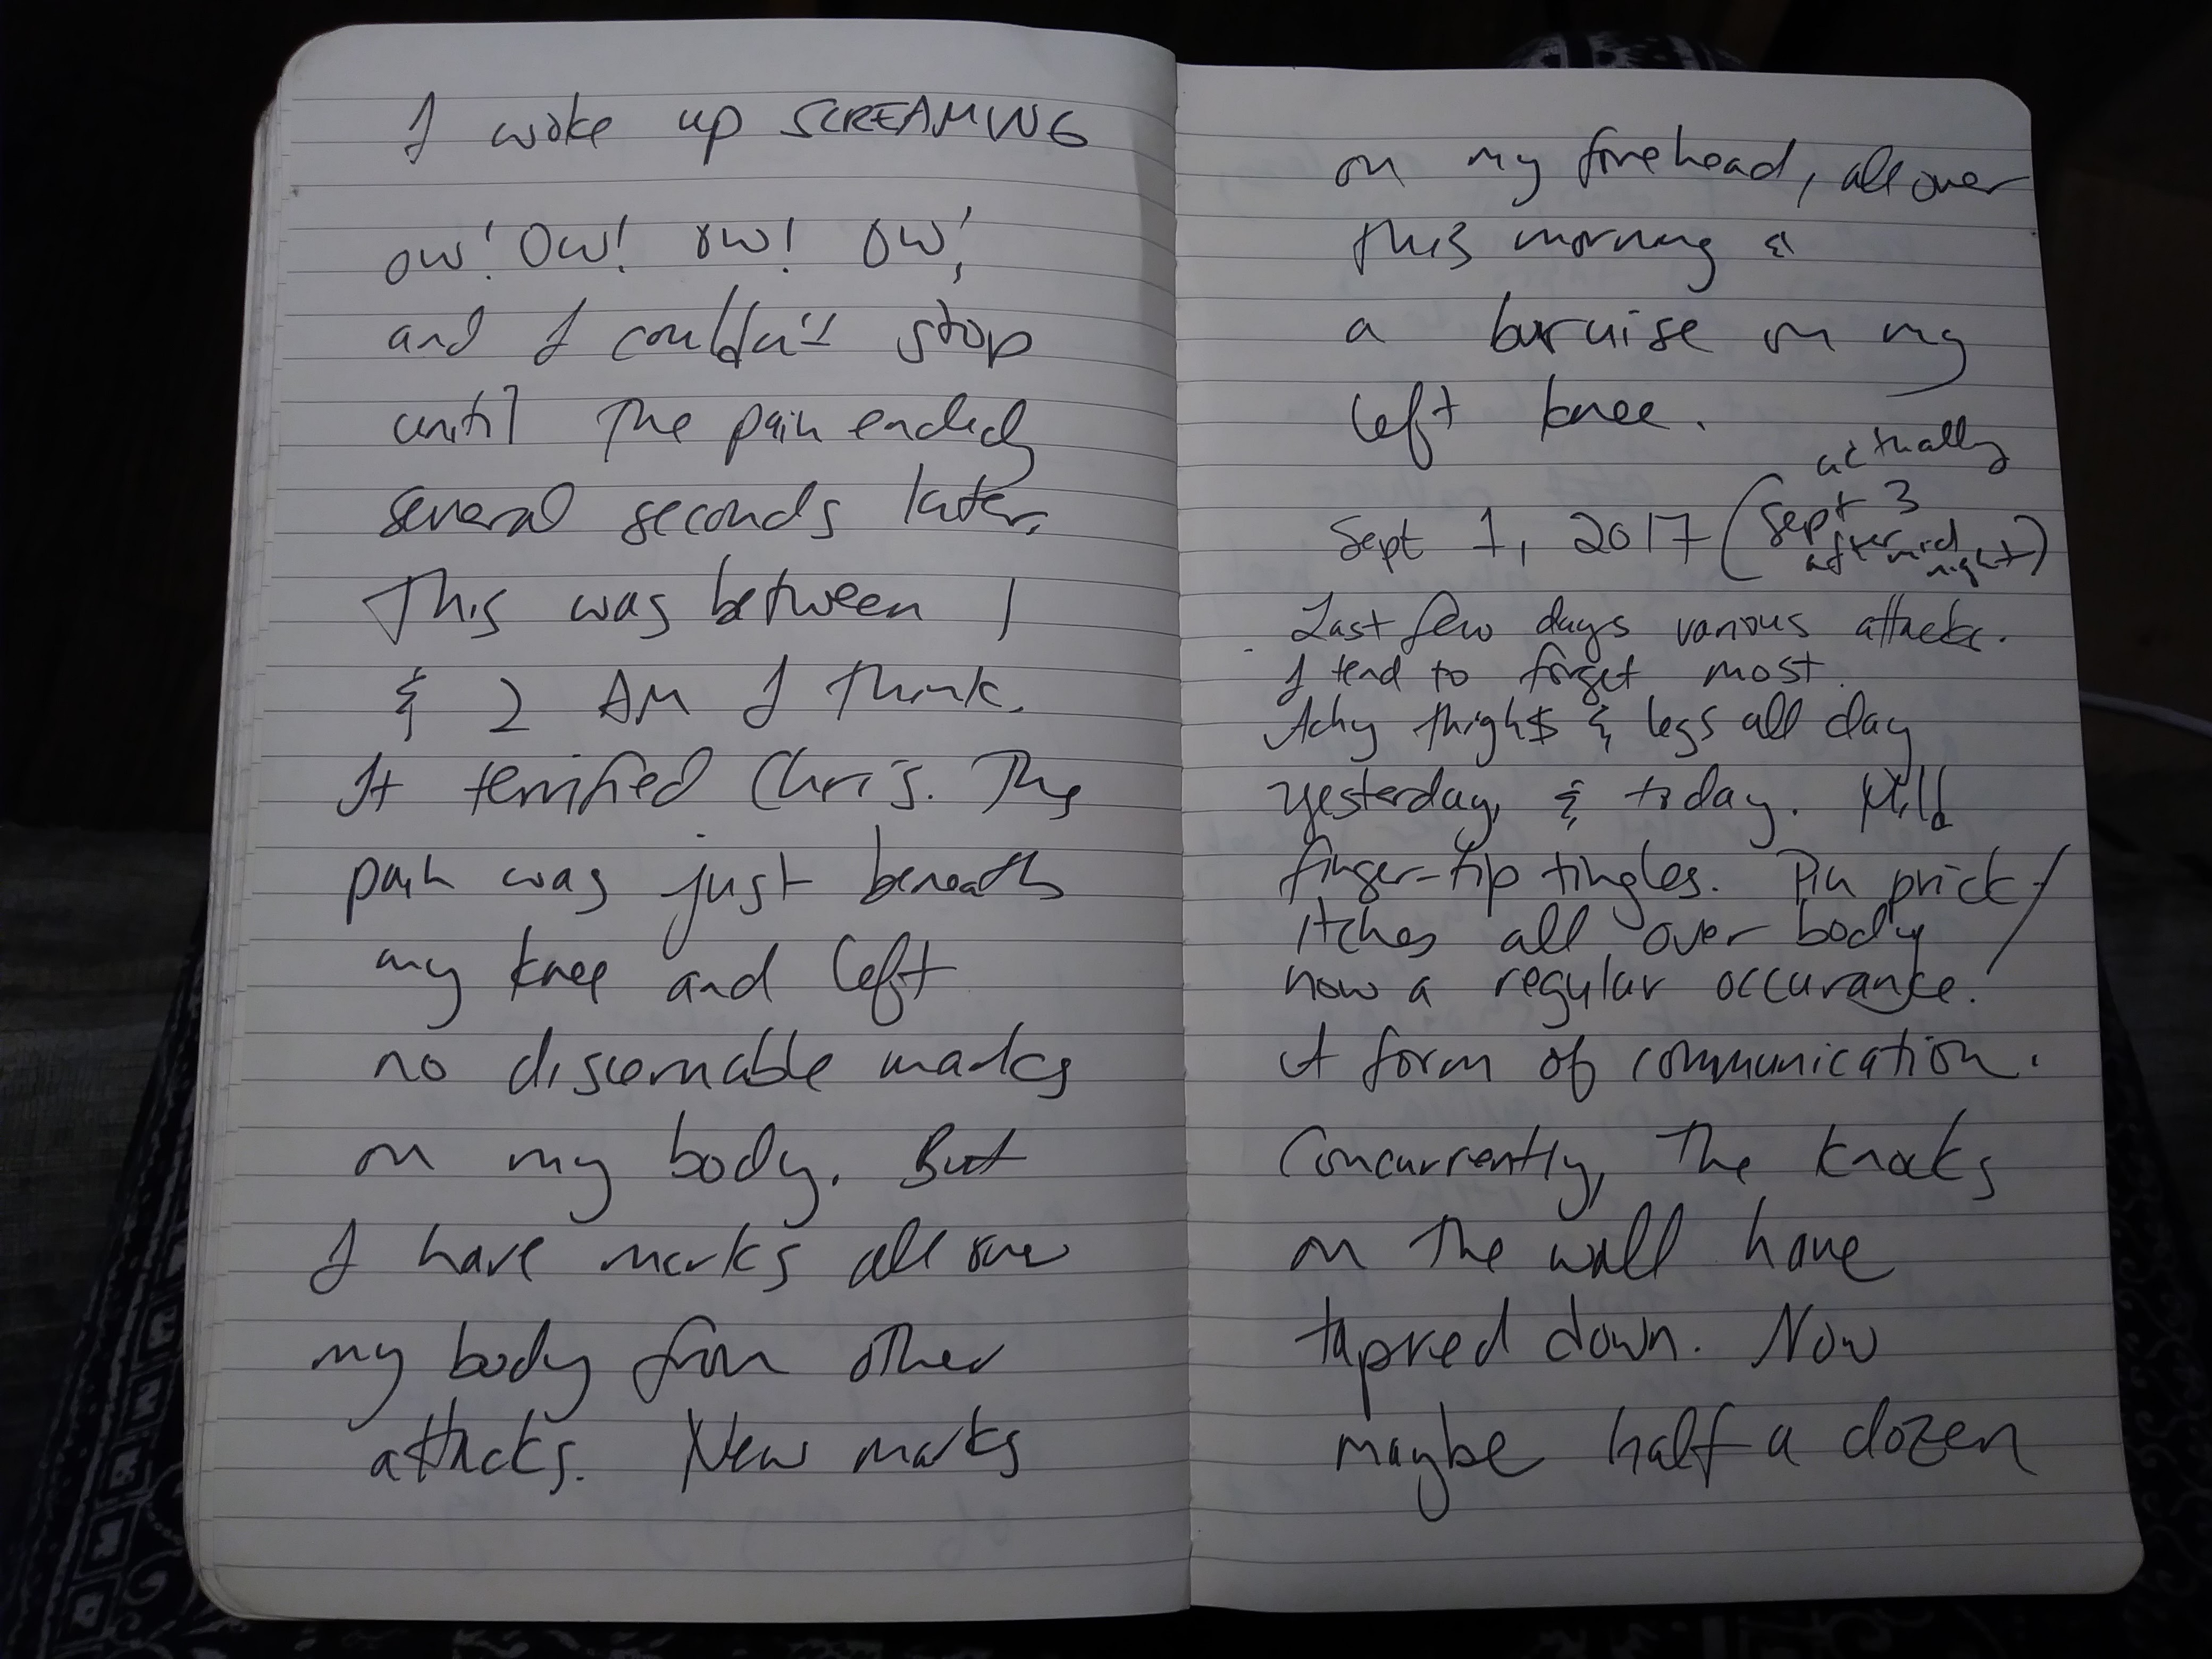 I woke up SCREAMING
ow! Ow! ow! ow!
and I couldn't stop
until the pain ended
several seconds later.
This was between 1
& 2 AM I think.
It terrified Chris. The
pain was just beneath
my knee and left
no discernable marks
on my body. But
I have marks all over
my body from other
attacks. New marks
on my forehead, all over
this morning &
a buruise on my
left knee.
actually
Sept 1, 2017 (Sept 3
after mid
night)
Last few days various attacks.
I tend to forget most.
Achy thighs & legs all day
yesterday, & today. Mild
finger-tip tingles. Pin prick/
itches all over body
now a regular occurance.
A form of communication.
Concurrently, the knocks
on the wall have
tapred down. Now
maybe half a dozen